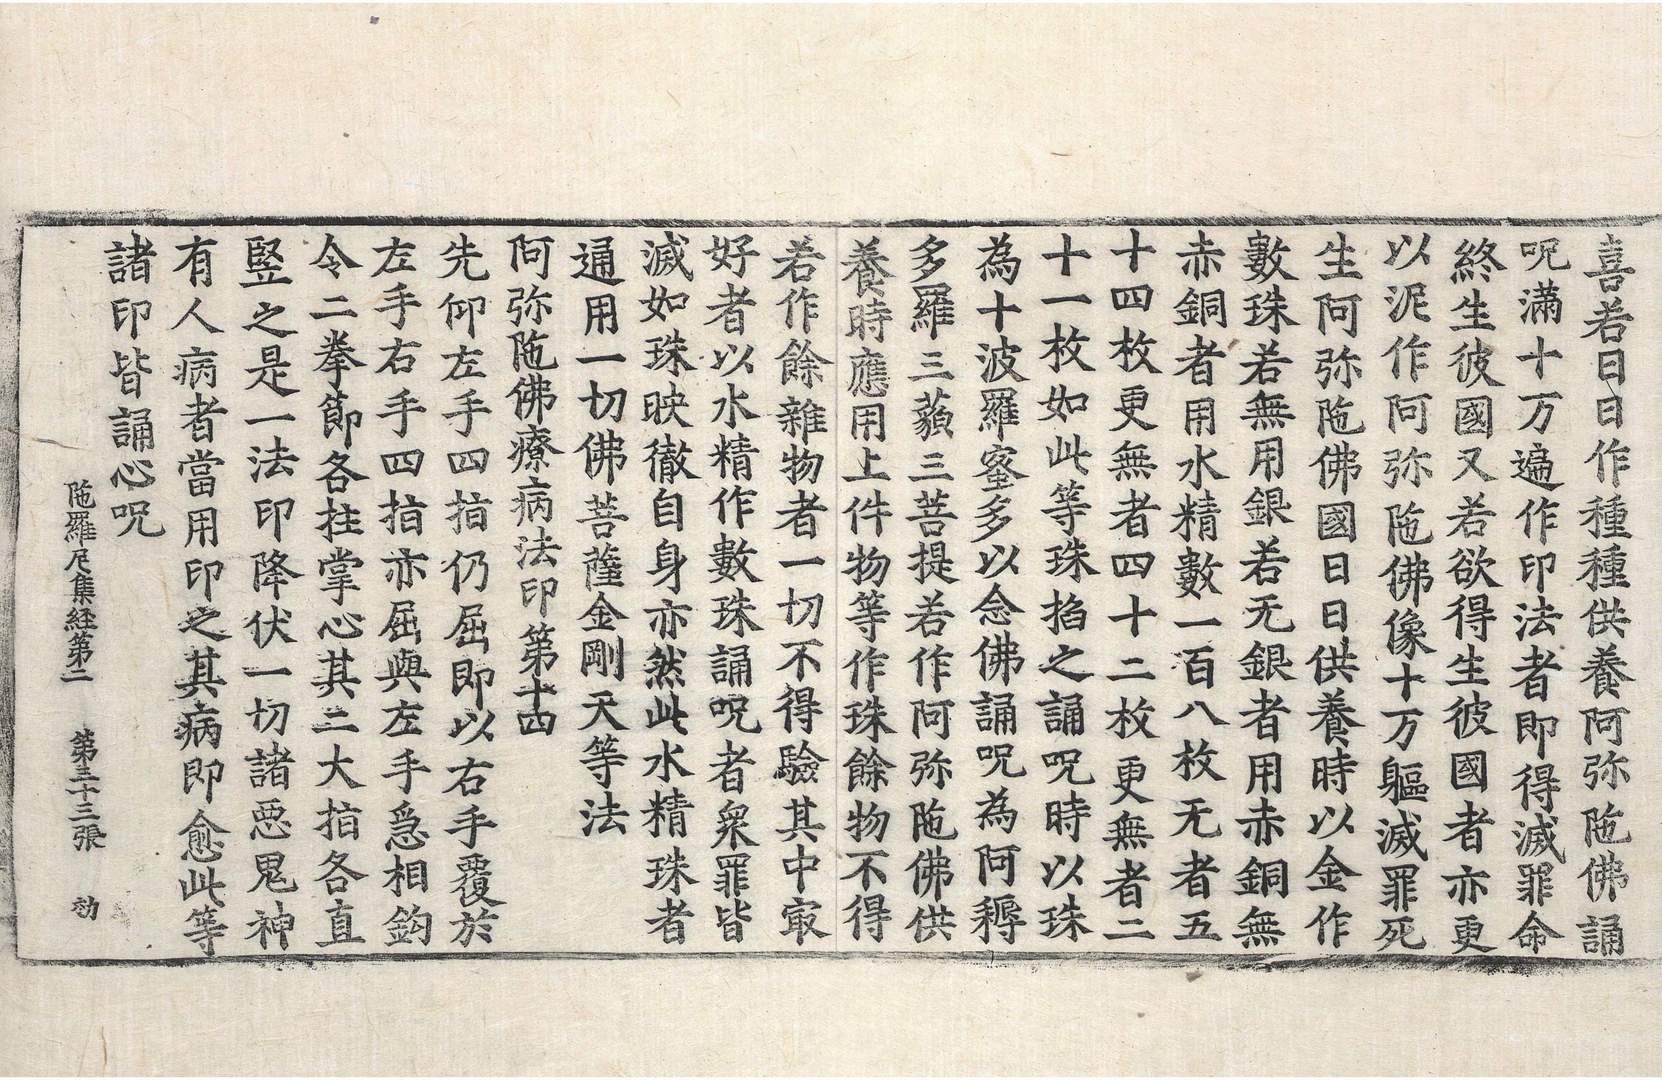 喜若日日作種種供養阿弥陁佛誦
呪滿十万遍作印法者即得滅罪命
終生彼國又若欲得生彼國者亦更
以泥作阿弥陁佛像十万軀滅罪死
生阿弥陁佛國日日供養時以金作
數珠若無用銀若无銀者用赤銅無
赤銅者用水精數一百八枚无者五
十四枚更無者四十二枚更無者二
十一枚如此等珠掐之誦呪時以珠
為十波羅蜜多以念佛誦呪為阿耨
多羅三藐三菩提若作阿弥陁佛供
養時應用上件物等作珠餘物不得
若作餘雜物者一切不得驗其中㝡
好者以水精作數珠誦呪者衆罪皆
滅如珠映徹自身亦然此水精珠者
通用一切佛菩薩金剛天等法
阿弥陁佛療病法印第十四
先仰左手四指仍屈即以右手覆於
左手右手四指亦屈與左手急相鉤
令二拳節各拄掌心其二大指各直
竪之是一法印降伏一切諸惡鬼神
有人病者當用印之其病即愈此等
諸印皆誦心呪
陁羅尼集経第二 第三十三張 効